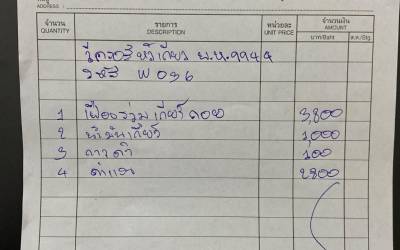 ADDRESS :
จำนวน รายการ หน่วยละ จำนวนเงิน
QUANTITY DESCRIPTION UNIT PRICE AMOUNT
บาท/Baht ส.ต./Stg.
หัวเกียร์ 9944
รหัส W036
1 เฟืองร่วมเกียร์ถอย 3,800
2 น้ำมันเกียร์ 1,000
3 กาวดำ 100
4 ค่าแรง 2800